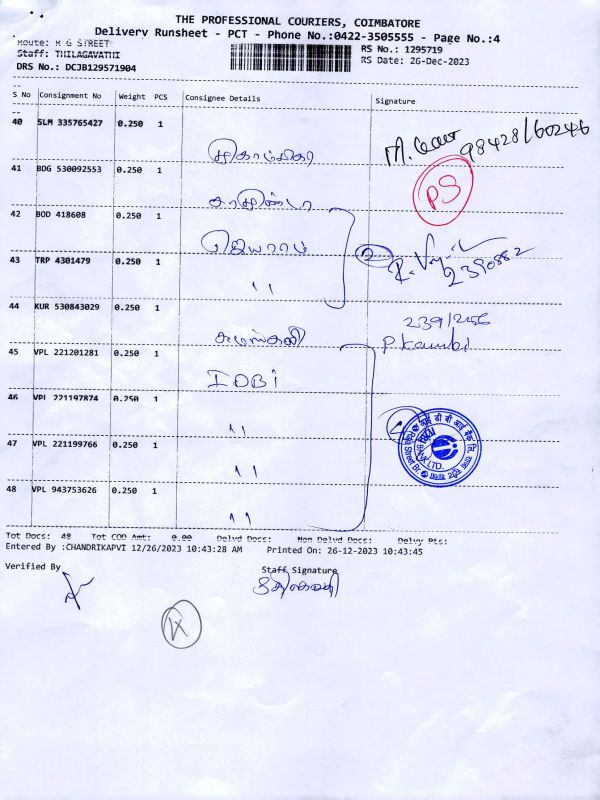 THE PROFESSIONAL COURIERS, COIMBATORE
Delivery Runsheet - PCT - Phone No.:0422-3505555 - Page No.:4
Route: M G STREET
RS No.: 1295719
Staff: THILAGAVATHI
RS Date: 26-Dec-2023
DRS No.: DCJB129571904
S No Consignment No Weight PCS Consignee Details Signature
40 SLM 335765427 0.250 1
98428/60246
41 BDG 530092553 0.250 1
PS
42 BOD 418608 0.250 1
ஜெயராம்
2390882
43 TRP 4301479 0.250 1
"
44 KUR 530843029 0.250 1
239/256
45 VPL 221201281 0.250 1
IDBI
46 VPL 221197874 0.250 1
"
47 VPL 221199766 0.250 1
"
48 VPL 943753626 0.250 1
"
Tot Docs: 48 Tot COD Amt: 0.00 Delvd Docs: Non Delvd Docs: Delvy Pts:
Entered By :CHANDRIKAPVI 12/26/2023 10:43:28 AM Printed On: 26-12-2023 10:43:45
Verified By Staff Signature
4